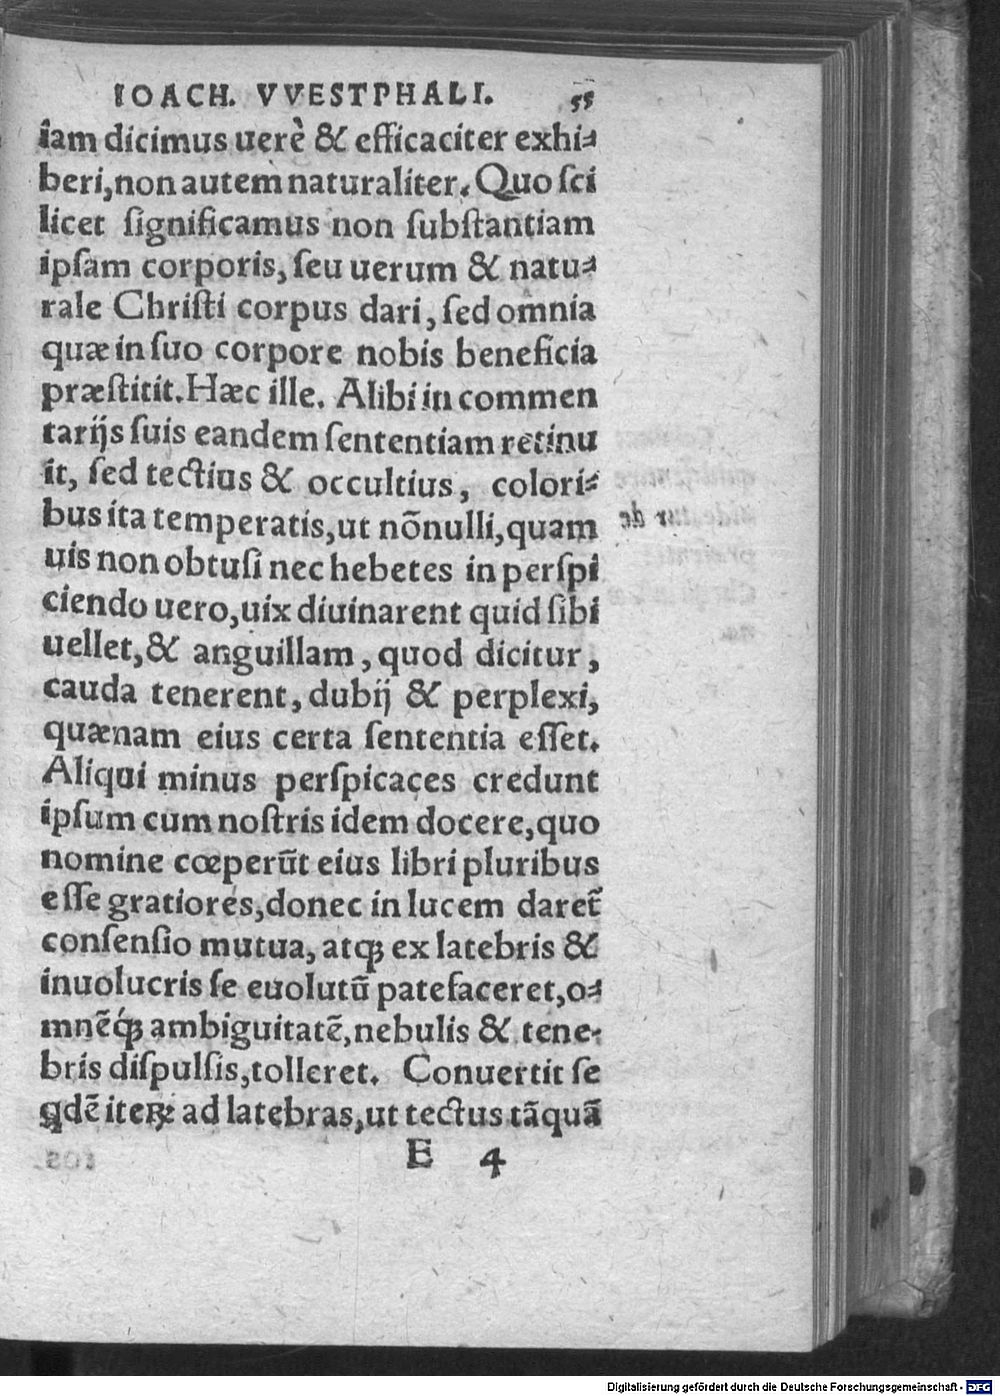 IOACH. VVESTPHALI. 55
iam dicimus uerè & efficaciter exhi-
beri, non autem naturaliter. Quo sci
licet ſignificamus non ſubſtantiam
ipſam corporis, ſeu uerum & natu-
rale Chriſti corpus dari, ſed omnia
quæ in ſuo corpore nobis beneficia
præſtitit. Hæc ille. Alibi in commen
tarijs ſuis eandem ſententiam retinu
it, ſed tectius & occultius, colori-
bus ita temperatis, ut nõnulli, quam
uis non obtuſi nec hebetes in perſpi
ciendo uero, uix diuinarent quid ſibi
uellet, & anguillam, quod dicitur,
cauda tenerent, dubij & perplexi,
quænam eius certa ſententia eſſet.
Aliqui minus perſpicaces credunt
ipſum cum noſtris idem docere, quo
nomine cœperũt eius libri pluribus
eſſe gratiores, donec in lucem daret̃
conſenſio mutua, atqꝫ ex latebris &
inuolucris ſe euolutũ patefaceret, o-
mnẽqꝫ ambiguitatẽ, nebulis & tene-
bris diſpulſis, tolleret. Conuertit ſe
qdẽ iteꝝ ad latebras, ut tectus tãquã
E 4